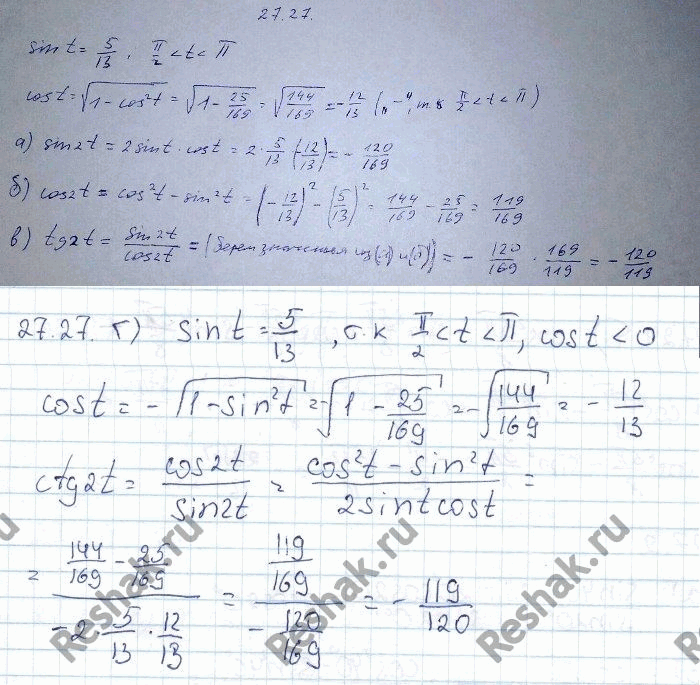 27.27.
sin t = 5/13, π/2 < t < π
cos t = √(1 - cos²t) = √(1 - 25/169) = √(144/169) = -12/13 ("-", т.к π/2 < t < π)
а) sin2t = 2sin t · cos t = 2 · 5/13 (-12/13) = - 120/169
б) cos2t = cos²t - sin²t = (-12/13)² - (5/13)² = 144/169 - 25/169 = 119/169
в) tg2t = sin2t/cos2t = (берем значения из (а) и (б)) = - 120/169 · 169/119 = - 120/119
27.27. г) sin t = 5/13, т.к π/2 < t < π, cos t < 0
cos t = - √(1 - sin²t) = -√(1 - 25/169) = -√(144/169) = - 12/13
ctg2t = cos2t/sin2t = (cos²t - sin²t)/(2sint cost) =
= (144/169 - 25/169)/(-2 · 5/13 · 12/13) = (119/169)/(-120/169) = - 119/120
Reshak.ru
Reshak.ru
Reshak.ru